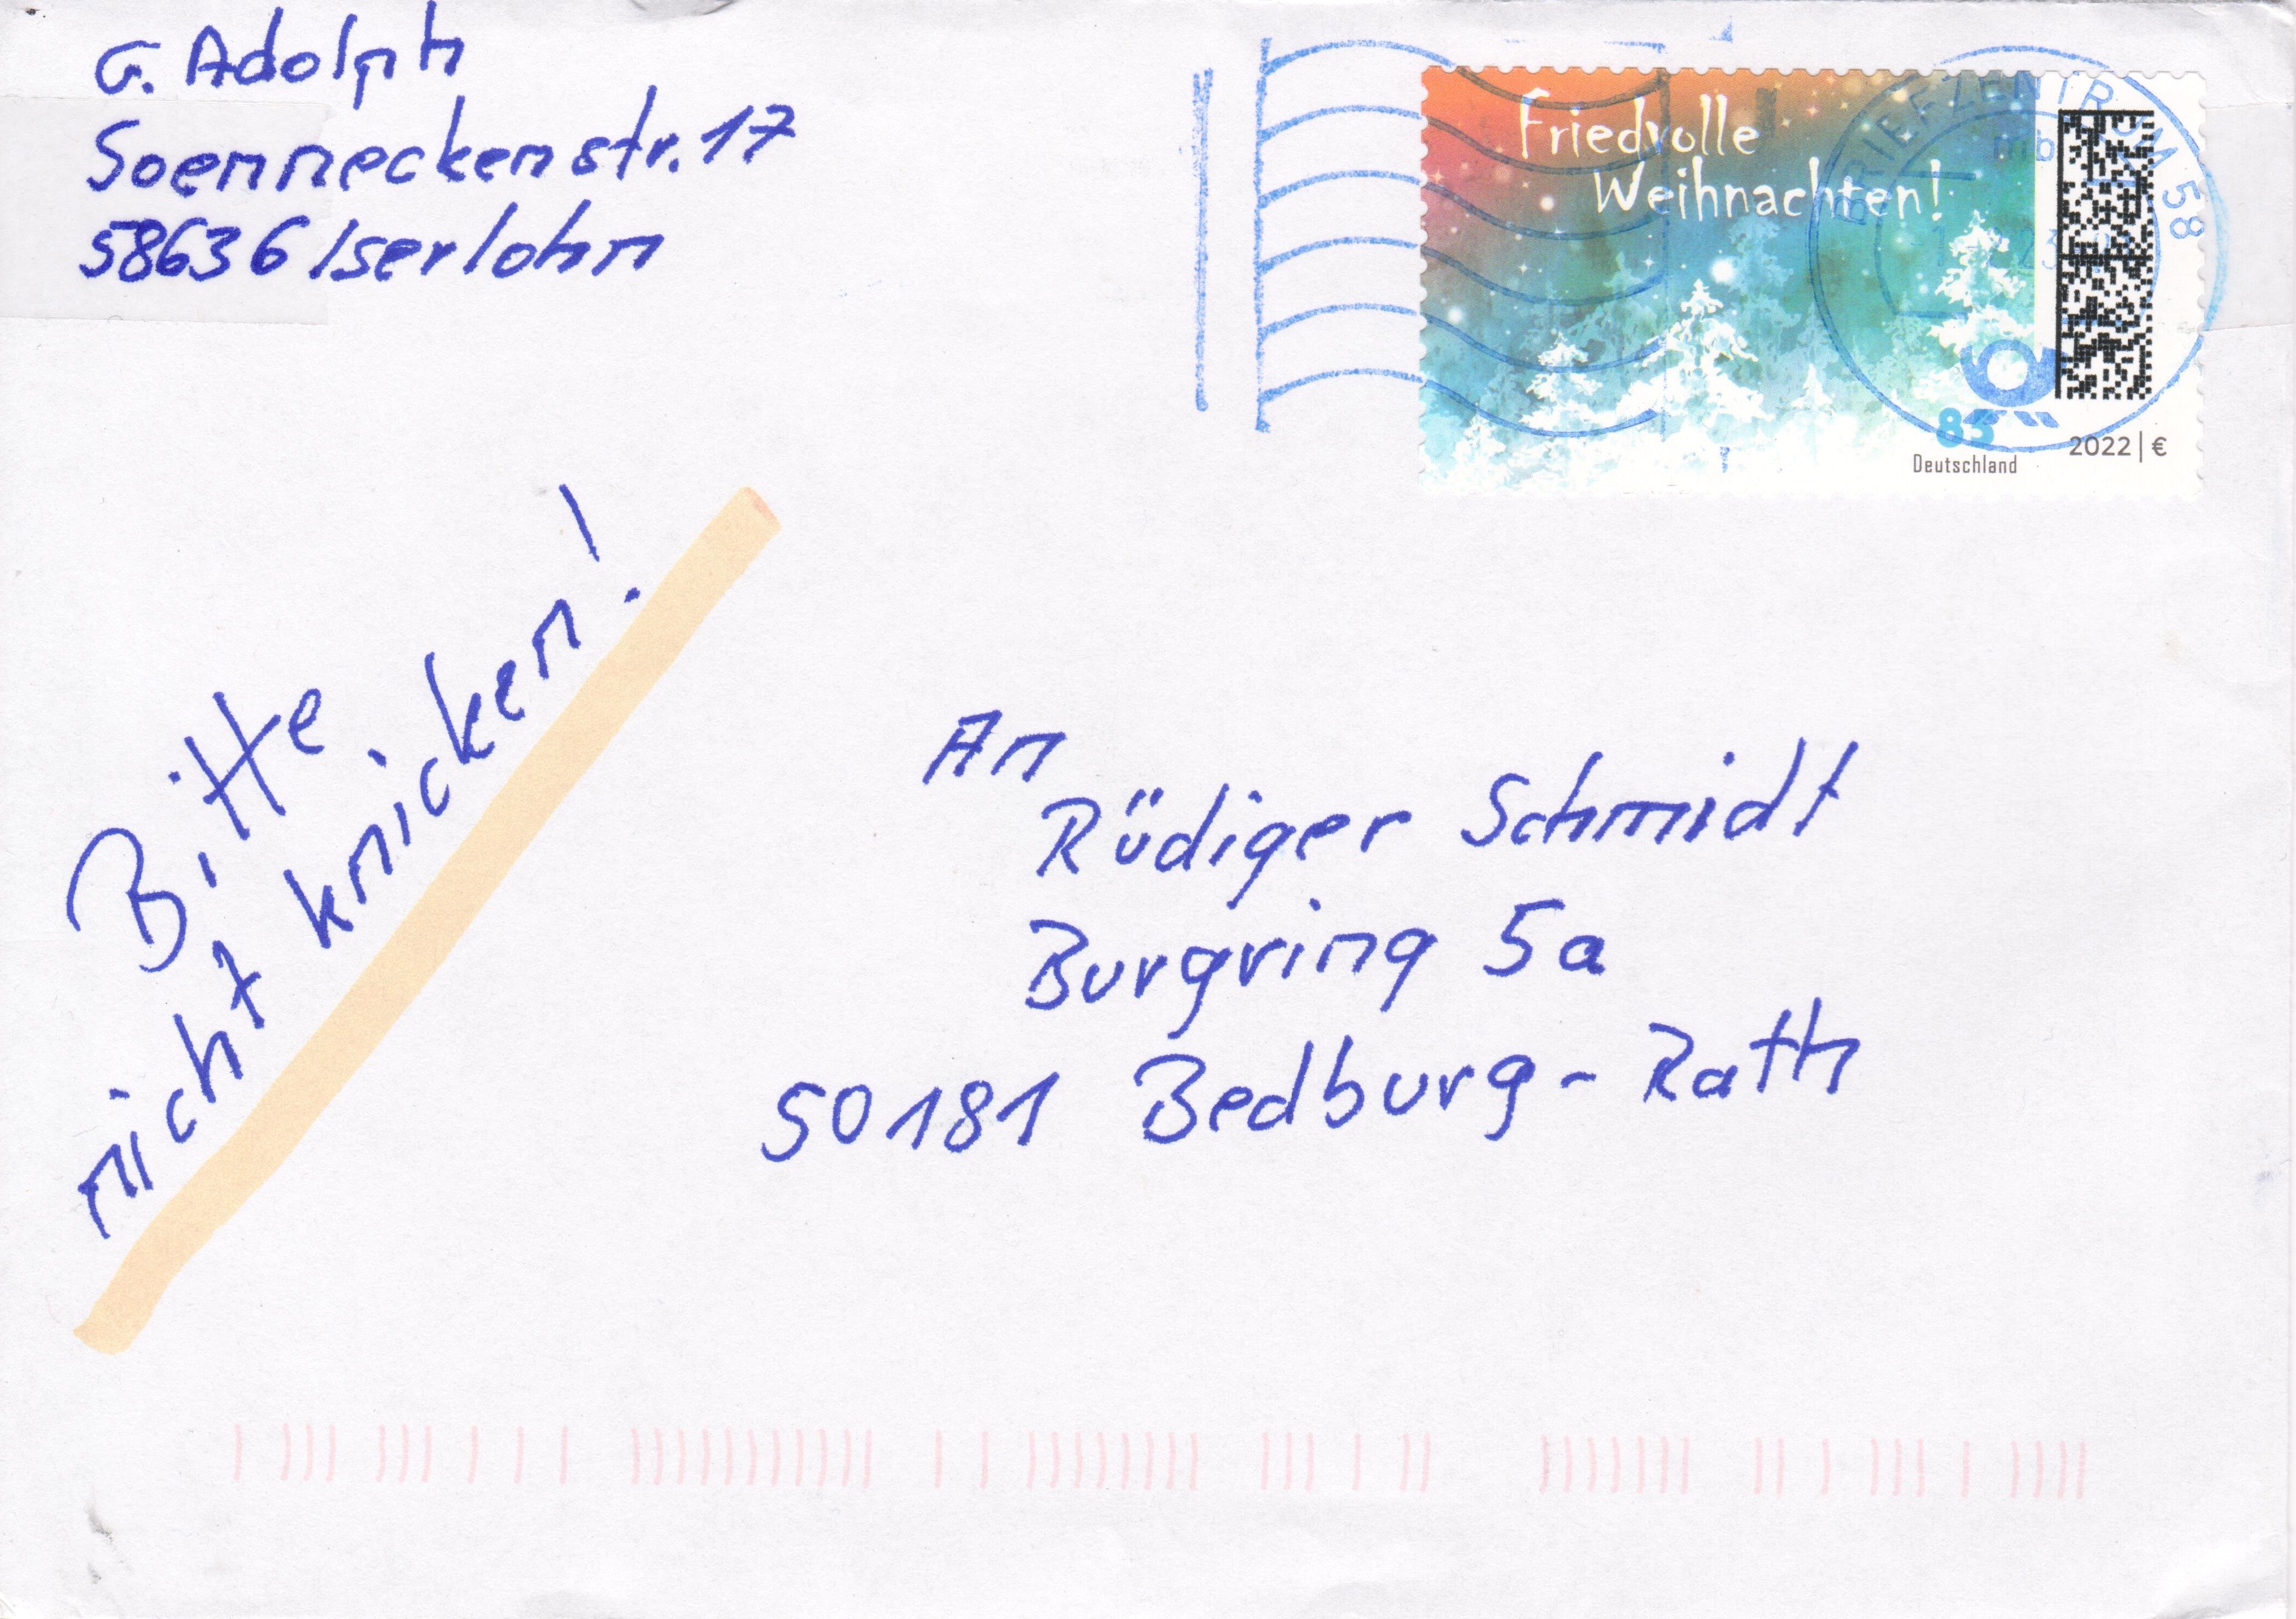 G. Adolph
Soenneckenstr. 17
58636 Iserlohn
Friedvolle
Weihnachten!
BRIEFZENTRUM 58
mb
85
2022 | €
Deutschland
Bitte
nicht knicken!
An
Rüdiger Schmidt
Burgring 5a
50181 Bedburg-Rath